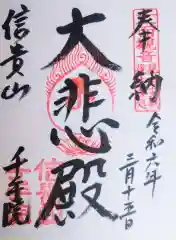 奉納
令和六年
三月十五日
大悲殿
信貴山
千手院